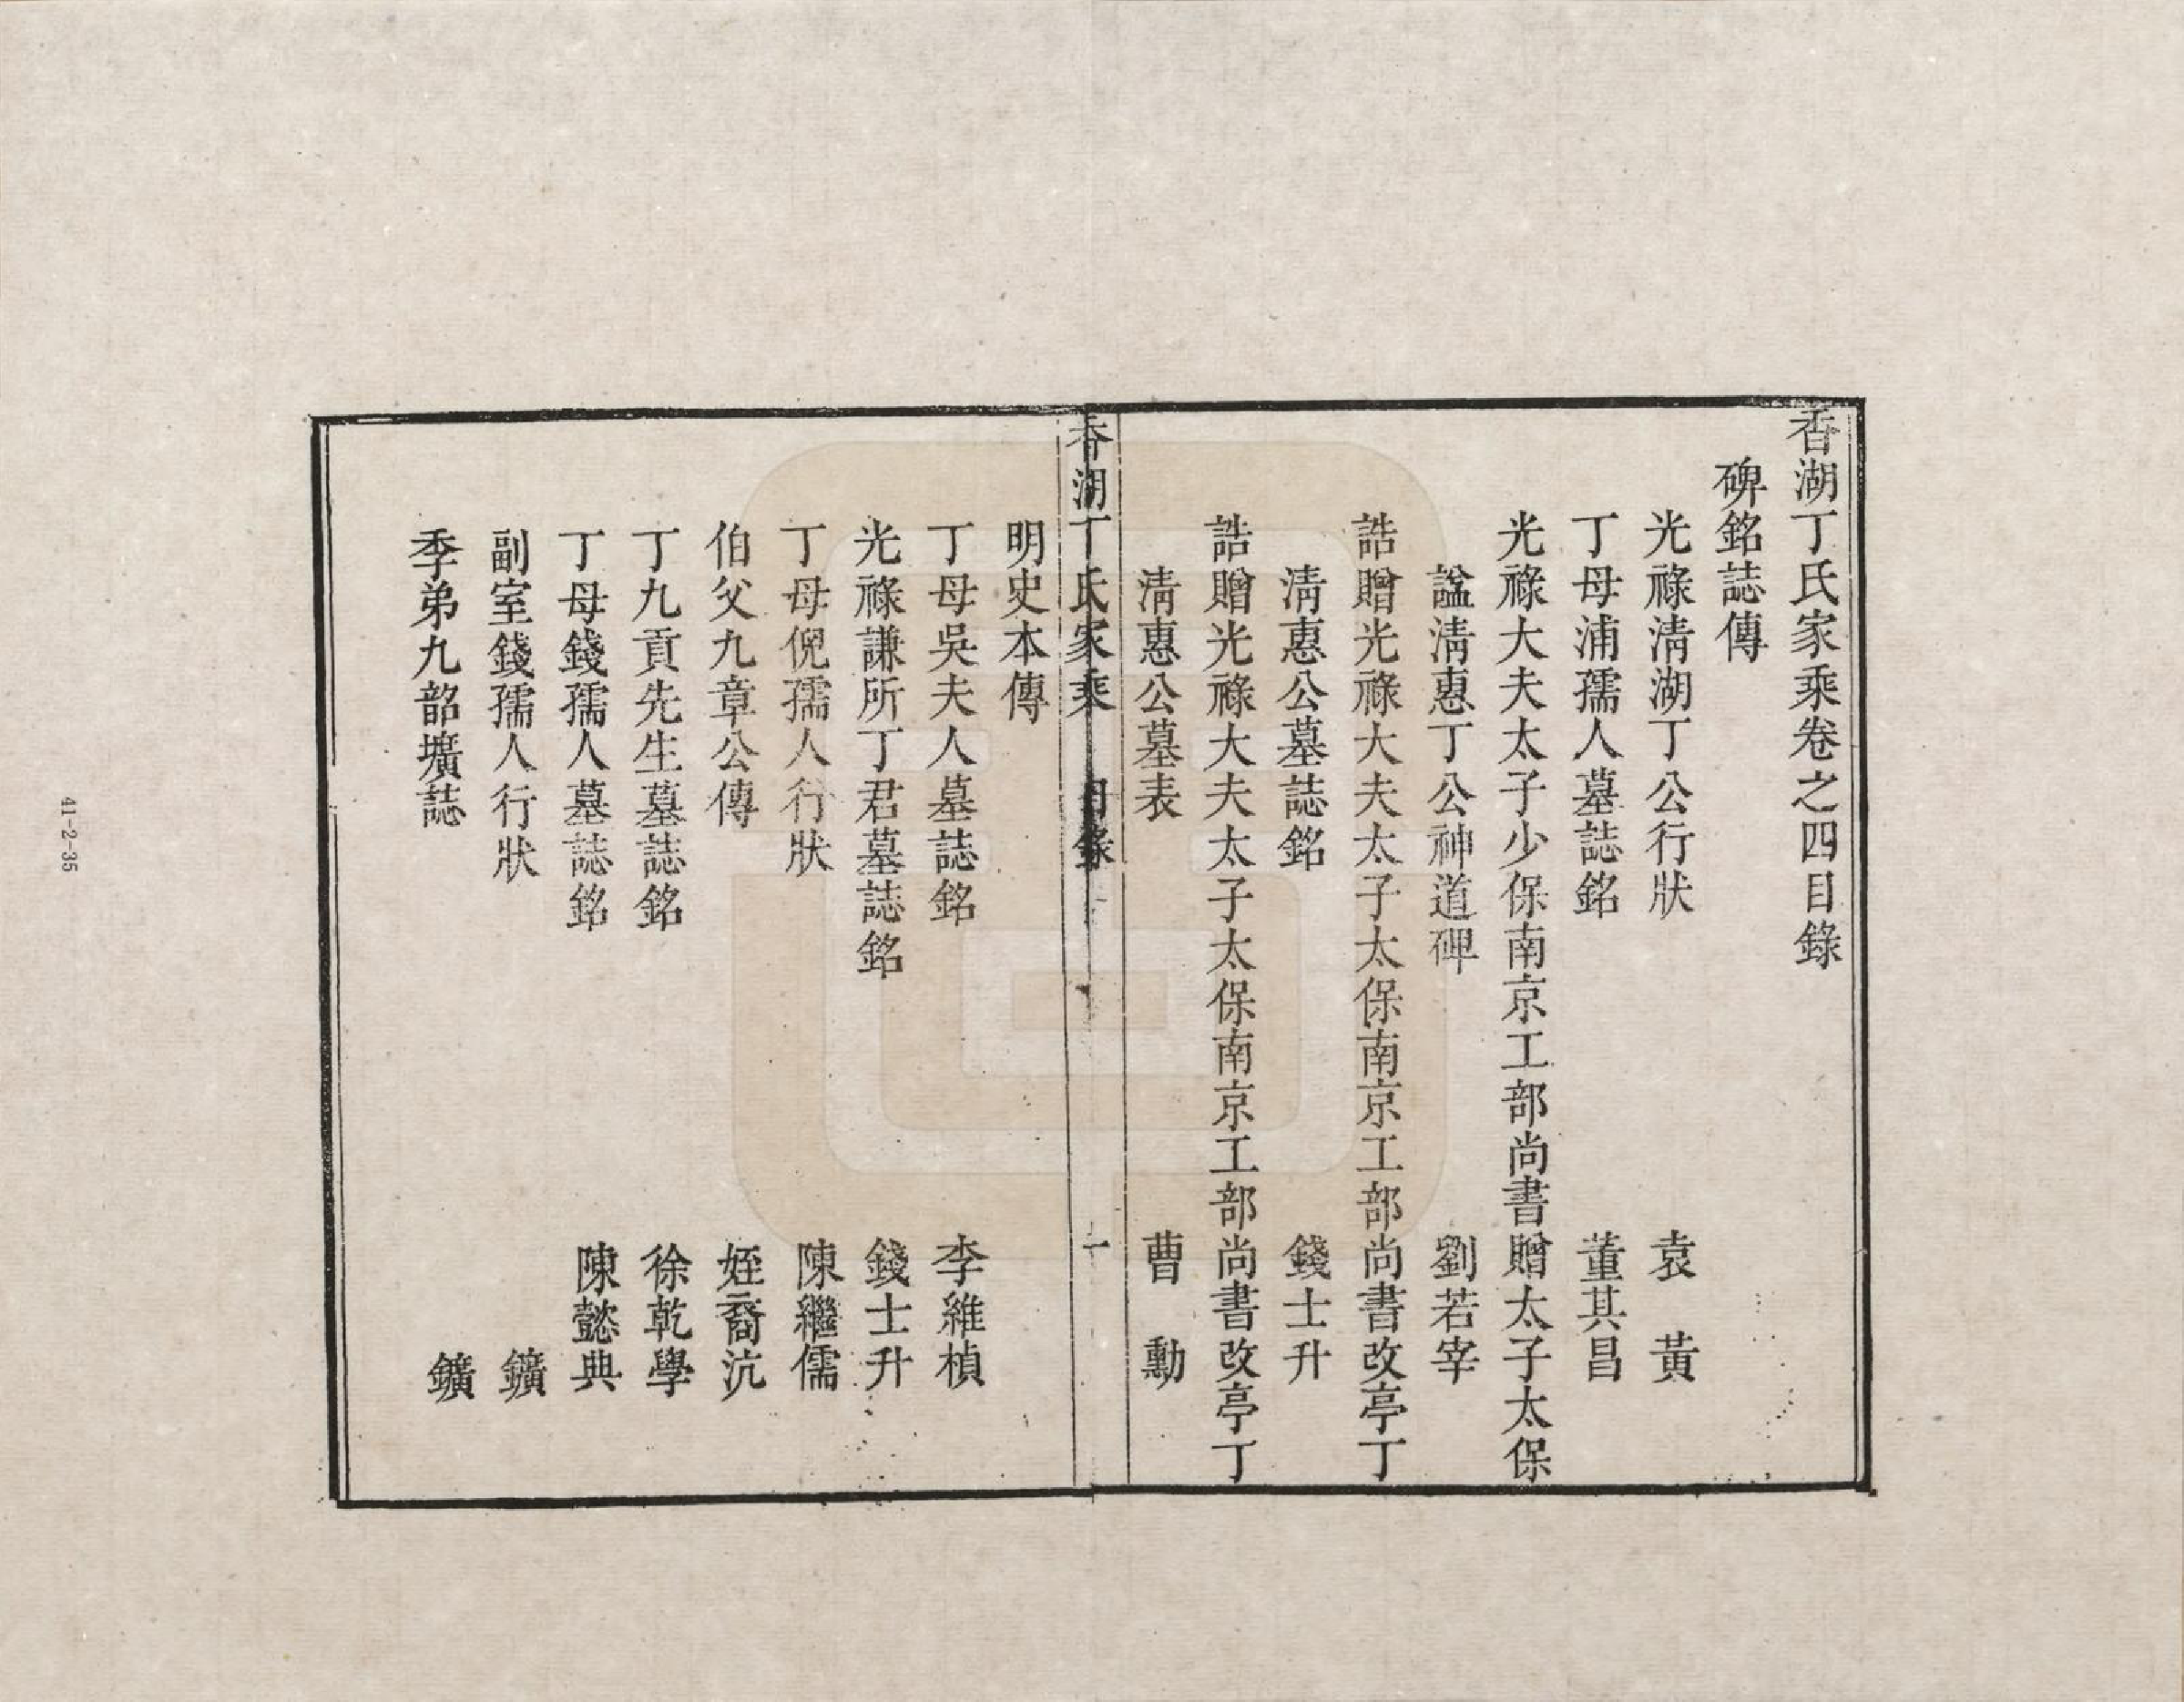 香湖丁氏家乘卷之四目錄
碑銘誌傳
光祿淸湖丁公行狀 袁 黃
丁母浦孺人墓誌銘 董其昌
光祿大夫太子少保南京工部尚書贈太子太保
諡淸惠丁公神道碑 劉若宰
誥贈光祿大夫太子太保南京工部尚書改亭丁
淸惠公墓誌銘 錢士升
誥贈光祿大夫太子太保南京工部尚書改亭丁
淸惠公墓表 曹 勳
香湖丁氏家乘 目錄 一
明史本傳
丁母吳夫人墓誌銘 李維楨
光祿謙所丁君墓誌銘 錢士升
丁母倪孺人行狀 陳繼儒
伯父九章公傳 姪裔沆
丁九貢先生墓誌銘 徐乾學
丁母錢孺人墓誌銘 陳懿典
副室錢孺人行狀 鑛
季弟九韶壙誌 鑛
41-2-35